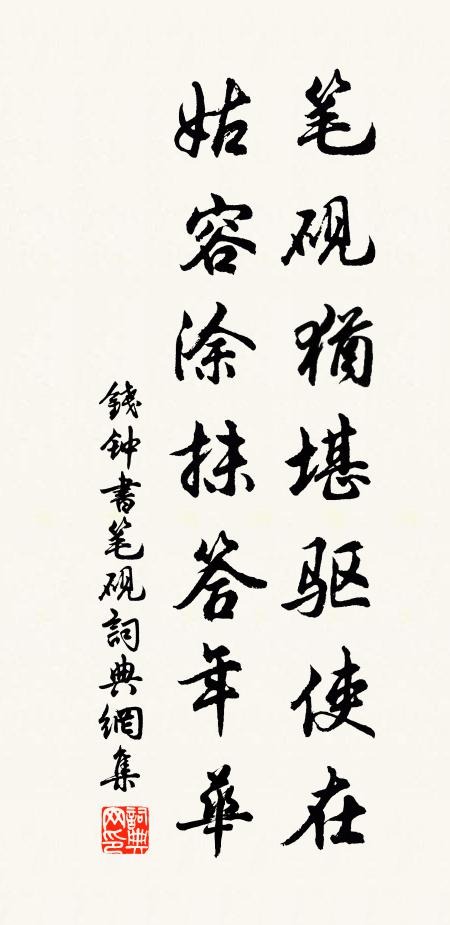 笔砚犹堪驱使在
姑容涂抹答年华
錢钟書笔砚詞典網集
詞典网印